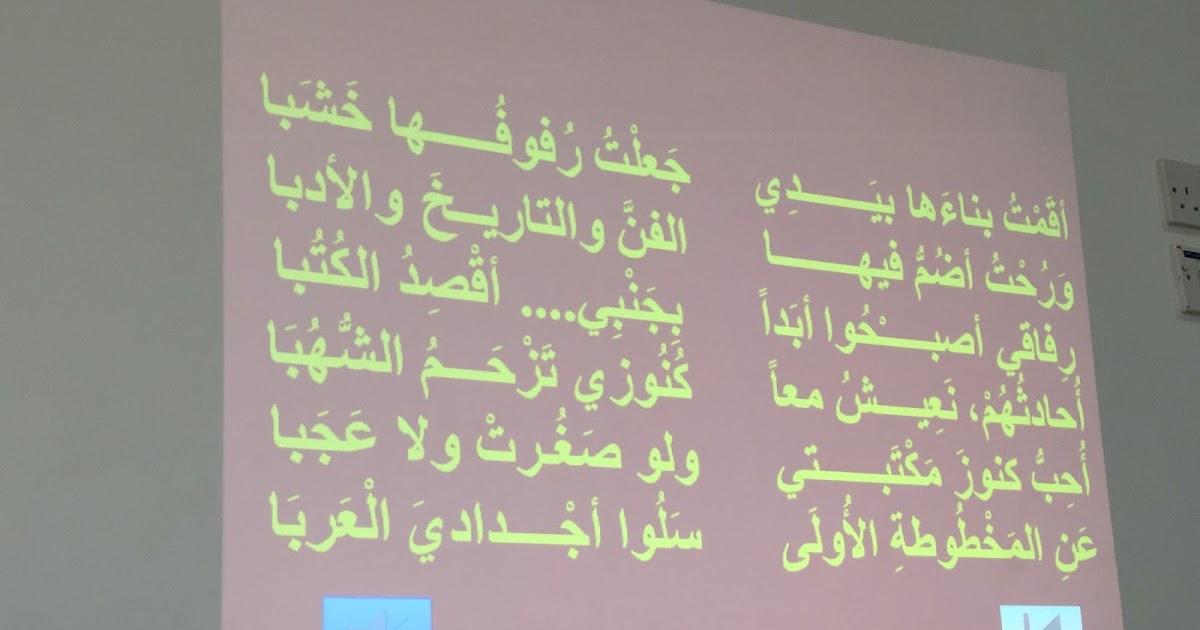 أقَمْتُ بناءَها بيَــــدِي جَعلْتُ رُفوفُــــها خَشبَا
وَرُحْتُ أضُمُّ فيهــــا الفنَّ والتاريــخَ والأدبا
رِفاقي أصبــحُوا أبَداً بِجَنْبِي.... أقْصِدُ الكُتُبا
أُحادثُهُمْ، نَعِيــشُ معاً كُنُوزي تَزْحَــمُ الشُّهُبَا
أُحِبُّ كنوزَ مَكْتَبــــتي ولو صَغُرتْ ولا عَجَبا
عَنِ المَخْطُوطةِ الأُولَى سَلُوا أجْــدادايَ الْعَربَا